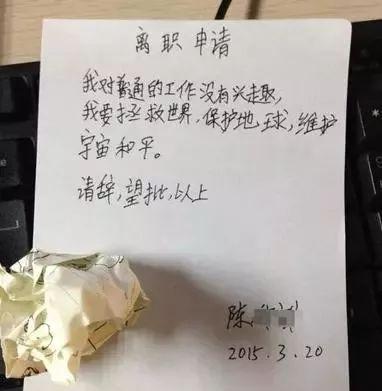 离职申请
我对普通的工作没有兴趣,
我要拯救世界,保护地球,维护
宇宙和平。
请辞,望批,以上
陈
2015.3.20